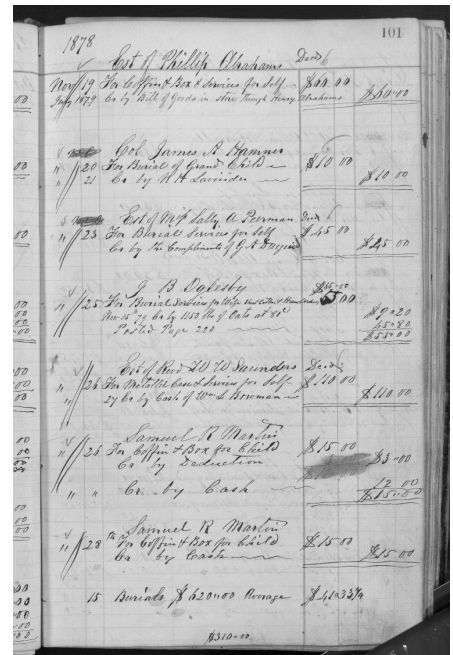 101
1878
Est of Phillip Abrahams Decd
Nov 19 For Coffin & Box & Services for Self $60 00
July 1879 Cr by Bill of Goods in store through Henry Abrahams $60=00
Col James A Hamner
" 20 For Burial of Grand Child $10 00
" 21 Cr by $10 00
Est of Mrs Sally A Perman Decd
" 23 For Burial Services for Self $45 00
Cr by the Compliments of $45 00
J B Oglesby $55=00
" 25 For Burial Services for Wife 55 00
Nov 15th 79 Cr by 1152 lbs of Oats at 80c $9=20
Posted Page 220 45=80
$55=00
Est of Revd W W Saunders Decd
" 26 For Metallic Case & Services for Self $110 00
27 Cr by Cash of Wm S Bowman $110 00
Samuel R Martin
" 26 For Coffin & Box for Child $15 00
Cr by Deduction $3=00
" " Cr by Cash 12 00
$15=00
Samuel R Martin
" 28th For Coffin & Box for Child $15 00
Cr by Cash $15 00
15 Burials $620=00 Average $41=33¼
$310=00